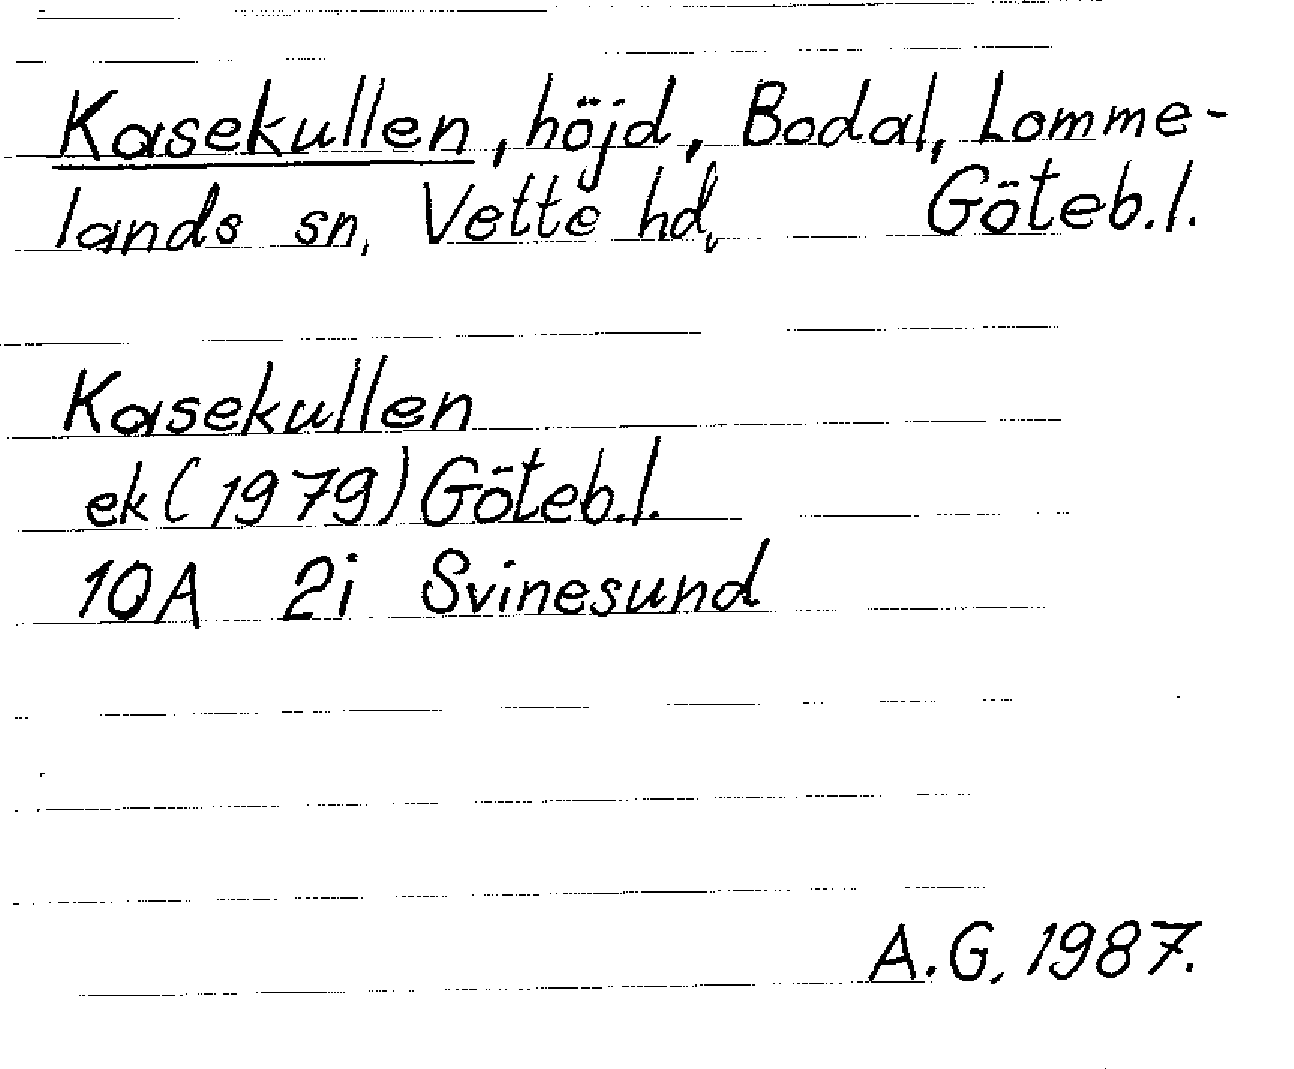 Kasekullen, höjd, Bodal, Lomme-
lands sn, Vette hd, Göteb.l.
Kasekullen
ek (1979) Göteb.l.
10A 2i Svinesund
A.G, 1987.